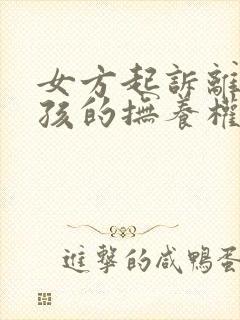 女方起訴離
孩的撫養權
進擊的咸鴨蛋